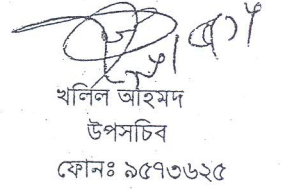 খলিল আহমদ
উপসচিব
ফোনঃ ৯৫৭৩৬২৫